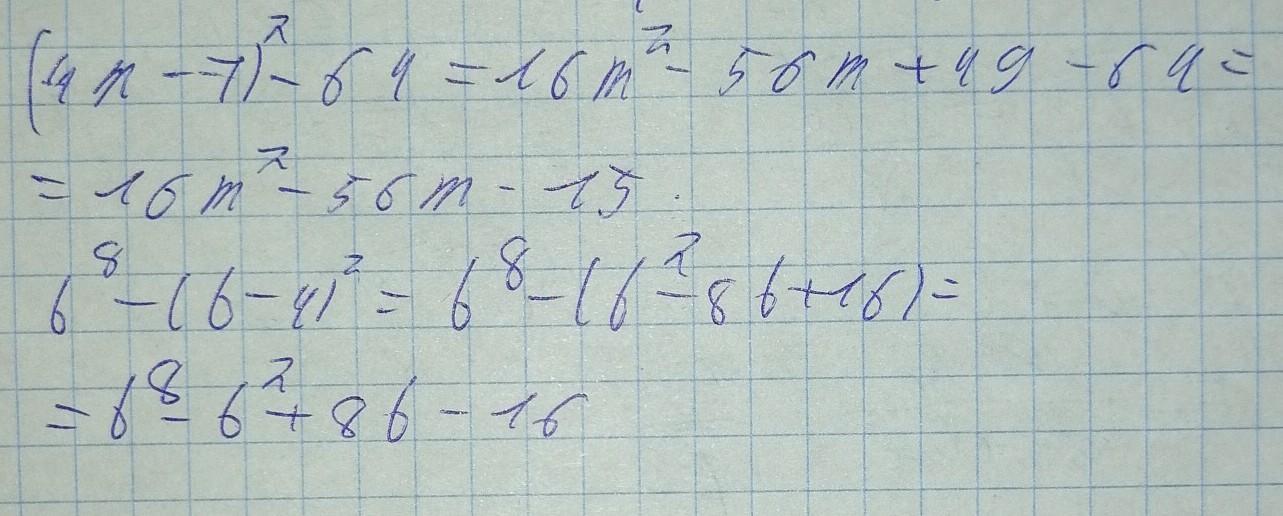 (4m - 7)² - 64 = 16m² - 56m + 49 - 64 =
= 16m² - 56m - 15.
b⁸ - (b - 4)² = b⁸ - (b² - 8b + 16) =
= b⁸ - b² + 8b - 16